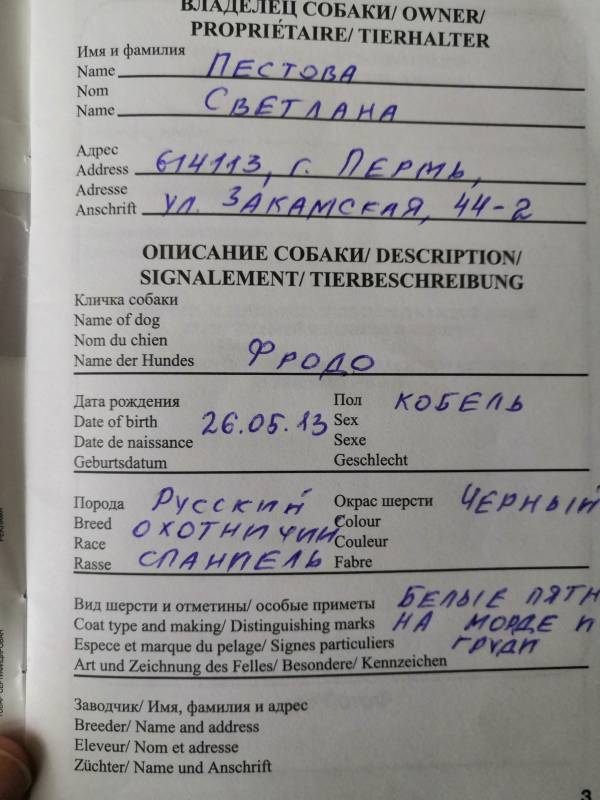 ВЛАДЕЛЕЦ СОБАКИ/ OWNER/
PROPRIÉTAIRE/ TIERHALTER
Имя и фамилия
Name ПЕСТОВА
Nom
Name СВЕТЛАНА
Адрес
Address 614113, г. ПЕРМЬ,
Adresse
Anschrift УЛ. ЗАКАМСКАЯ, 44-2
ОПИСАНИЕ СОБАКИ/ DESCRIPTION/
SIGNALEMENT/ TIERBESCHREIBUNG
Кличка собаки
Name of dog
Nom du chien
Name der Hundes ФРОДО
Дата рождения Пол КОБЕЛЬ
Date of birth 26.05.13 Sex
Date de naissance Sexe
Geburtsdatum Geschlecht
Порода РУССКИЙ Окрас шерсти ЧЕРНЫЙ
Breed ОХОТНИЧИЙ Colour
Race Couleur
Rasse СПАНИЕЛЬ Fabre
Вид шерсти и отметины/ особые приметы БЕЛЫЕ ПЯТН
Coat type and making/ Distinguishing marks НА МОРДЕ И
Espece et marque du pelage/ Signes particuliers ГРУДИ
Art und Zeichnung des Felles/ Besondere/ Kennzeichen
Заводчик/ Имя, фамилия и адрес
Breeder/ Name and address
Eleveur/ Nom et adresse
Züchter/ Name und Anschrift
3